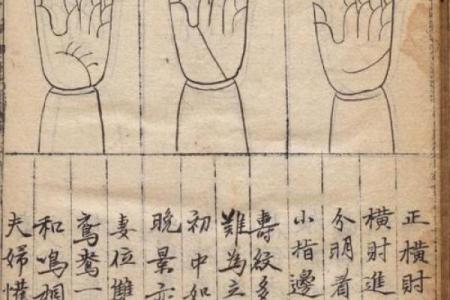 正橫財
橫財進
分明看
小指邊
壽紋多
難為立
初中如
晚景
妻位
鴛鴦一
和鳴
夫婦